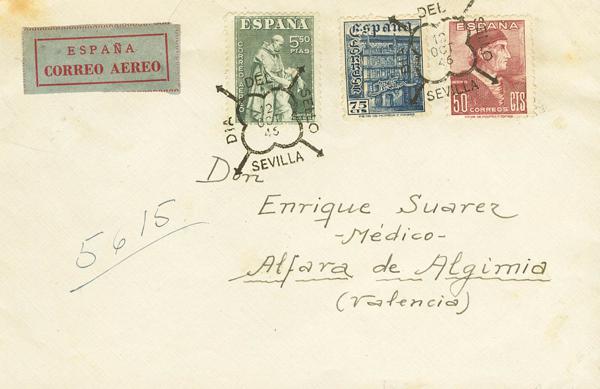 ESPAÑA
CORREO AEREO
ESPAÑA
5,50
PTAS
CORREO AEREO
España
75
CTS
ESPAÑA
50 CORREOS CTS
DIA DEL SELLO
12
OCT
46
SEVILLA
DEL
12
OCT
46
SEVILLA
Don
Enrique Suarez
-Médico-
Alfara de Algimia
(Valencia)
5615